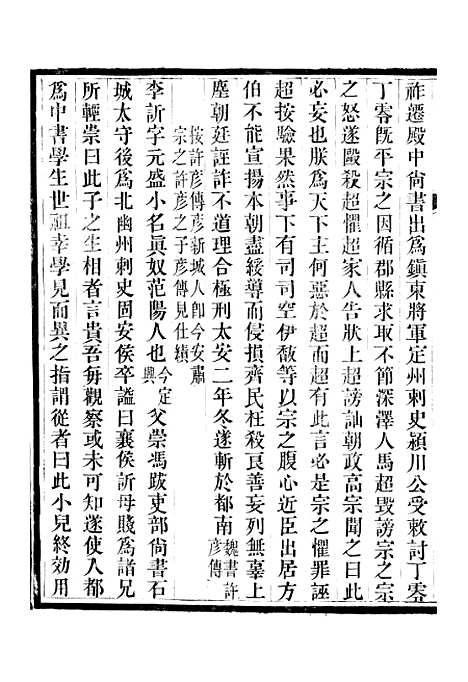 祚遷殿中尚書出爲鎭東將軍定州刺史潁川公受敕討丁零
丁零既平宗之因循郡縣求取不節深澤人馬超毀謗宗之宗
之怒遂毆殺超懼超家人告狀上超謗訕朝政高宗聞之曰此
必妄也朕爲天下主何惡於超而超有此言必是宗之懼罪誣
超按驗果然事下有司司空伊馛等以宗之腹心近臣出居方
伯不能宣揚本朝盡綏導而侵損齊民枉殺良善妄列無辜上
塵朝廷誣詐不道理合極刑太安二年冬遂斬於都南魏書許彥傳
按許彥傳彥新城人卽今安肅
宗之許彥之子彥傳見仕績
李訢字元盛小名眞奴范陽人也今定興父崇馮跋吏部尚書石
城太守後爲北幽州刺史固安侯卒謚曰襄侯訢母賤爲諸兄
所輕崇曰此子之生相者言貴吾每觀察或未可知遂使入都
爲中書學生世祖幸學見而異之指謂從者曰此小兒終効用